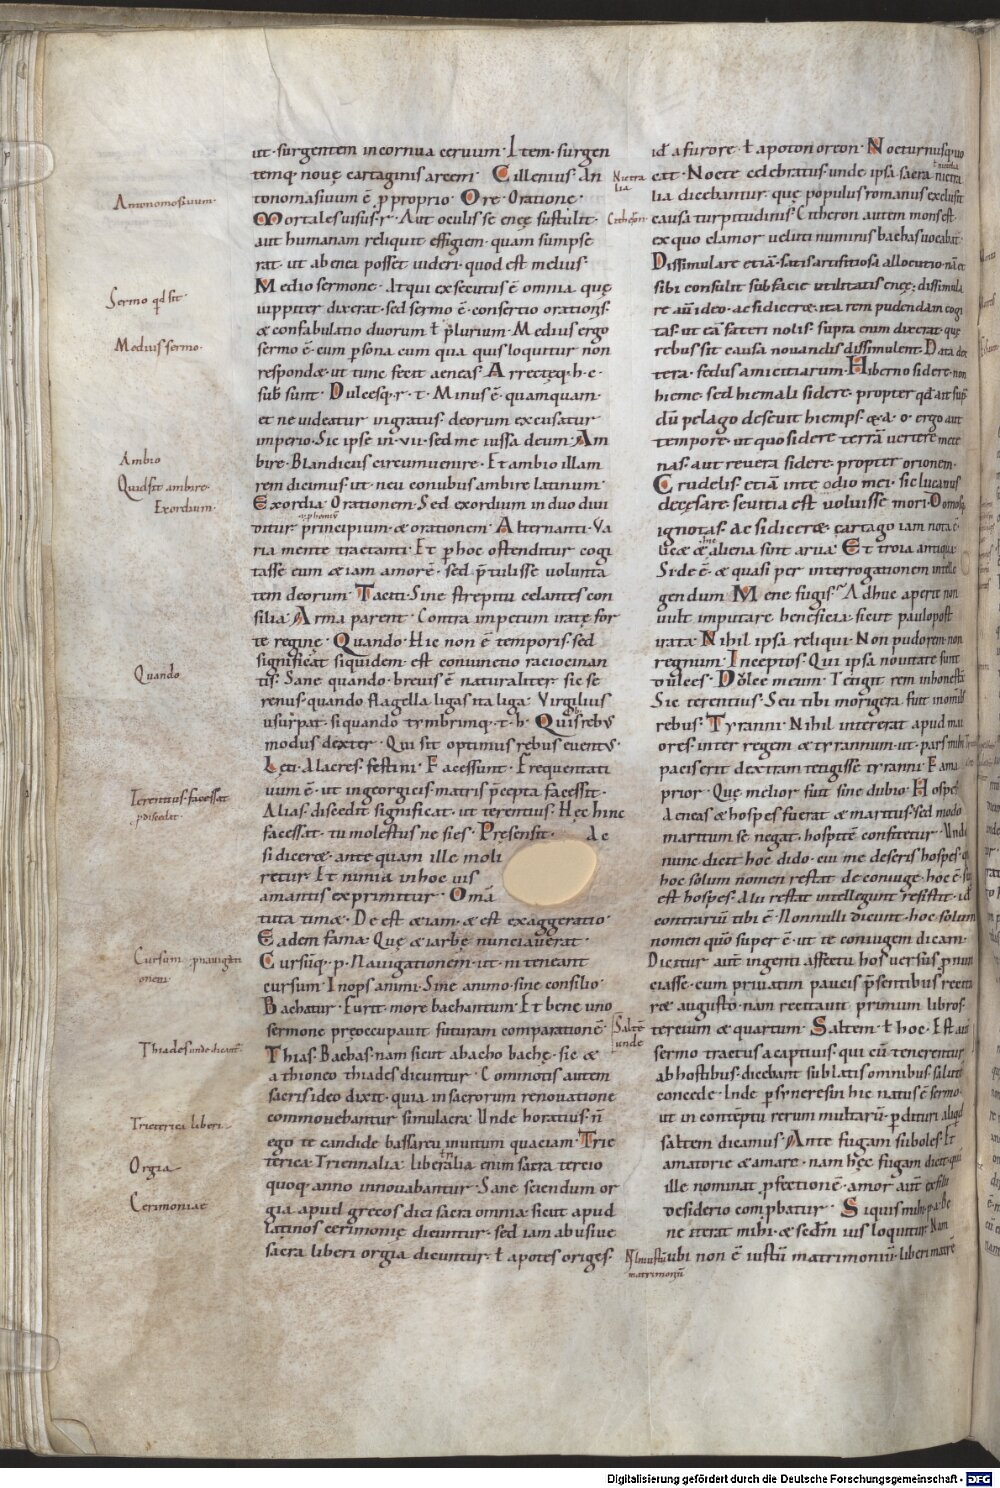 ut· surgentem in cornua ceruum· Item· surgen
temq· nouę cartaginis arcem· Cillenius· An
tonomasiuum ē p proprio· Ore· Oratione·
Mortales uisus· r· Aut oculis se enęę sustulit·
aut humanam reliquit effigiem· quam sumpse
rat· ut ab enea posset uideri· quod est melius·
Medio sermone· Atqui exsecutus ē omnia quę
iuppiter dixerat· sed sermo ē· consertio orationis·
& confabulatio duorum ł plurium· Medius ergo
sermo ē· cum psona cum qua quis loquitur non
respond&· ut tunc fecit aeneas· Arrectęq· h· c·
sub sunt· Dulcesq· r· t· Minus ē· quamquam·
et ne uideatur ingratus· deorum excusatur
imperio· Sic ipse in· vii· sed me iussa deum· Am
bire· Blandicus circumuenire· Et ambio illam
rem dicimus· ut neu conubus ambire latinum·
Exordia· Orationem· Sed exordium in duo diui
ditur principium· & orationem· Alternanti· Va
ria mente tractanti· Et p hoc ostenditur cogi
tasse eum &iam amorē· sed p̄tulisse volunta
tem deorum· Taciti· Sine strepitu celantes con
silia· Arma parent· Contra impetum iratę for
te reginę· Quando· Hic non ē temporis· sed
significat siquidem· est coniunctio raciocinan
tis· Sane quando· breuis ē naturaliter· sic se
renus· quando flagella ligas ita liga· Virgilius
usurpat· si quando tymbrinq· t· h· Quis rebus
modus dexter· Qui sit optimus rebus euentus·
Lęti· Alacres· festini· Facessunt· Frequentati
uum ē· ut in georgicis· matris p̄cepta facessit·
Alias· discedit significat· ut terentius· Hęc hinc
facessat· tu molestus ne sies· Pręsensit· Ac
si dicer&· ante quam ille moli
retur· Et nimia in hoc uis
amantis exprimitur· Omā
tuta tim&· De est &iam· & est exaggeratio·
Eadem fama· Quę & iarbę nunciauerat·
Cursūq· p· Nauigationem· ut· ni teneant
cursum· Inops animi· Sine animo· sine consilio·
Bachatur· Furit more bachantum· Et bene uno
sermone pręoccupauit futuram comparationē·
Thias· Bachas· nam sicut abacho bachę· sic &
a thioneo thiades dicuntur· Commotis autem
sacris ideo dixit· quia in sacrorum renouatione
commouebantur simulacra· Unde horatius· n̄
ego te candide bassareu inuitum quaciam· Trie
terica· Triennalia· liberalia enim sacra tercio
quoq· anno innouabantur· Sane sciendum or
gia apud grecos dici sacra omnia· sicut apud
latinos cerimonię dicuntur· sed iam abusiue
sacra liberi orgia dicuntur· ł apotes origes·
Antonomasiuum·
Sermo qd sit
Medius sermo·
Ambio
Quid sit ambire·
Exordium·
Quando
Terentius· facessat
p discedat·
Cursum· p nauigati
onem·
Thiades unde dicant·
Trieterica liberi·
Orgia
Cerimoniae
id a furore· ł apoton oreon· Nocturnusq· uo
cat· Nocte celebratus· unde ipsa sacra nictra
lia dicebantur· quę populus romanus exclusit
causa turpitudinis· Citheron autem mons est·
ex quo clamor ueluti numinis bachas uocabat·
Dissimulare etiā· Satis artifitiosa allocutio· nā et
sibi consulit sub facie utilitatis enęę· dissimula
re aūt ideo· ac si dicer&· ita rem pudendam cogi
tas· ut eā fateri nolis· supra enim dixerat· quę
rebus sit causa nouandis dissimulent· Data dex
tera· fedus amicitiarum· Hiberno sidere· non
hieme· sed hiemali sidere· propter qd ait sup̄
dū pelago deseuit hiemps· &· a· o· ergo aut
tempore· ut quo sidere terrā uertere mece
nas· aut reuera sidere· propter orionem·
Crudelis· etiā in te· odio mei· sic lucanus
decesare· seuitia est uoluisse mori· Domosq
ignotas· Ac si dicer&· cartago iam nota ē·
lic& & aliena sint arua· Et troia antiqua
Si· de ē· & quasi per interrogationem intelle
gendum· Mene fugis· Adhuc aperte non
uult imputare beneficia· sicut paulo post
irata· Nihil ipsa reliqui· Non pudorem· non
regnum· Inceptos· Qui ipsa nouitate sunt
dulces· Dulce meum· Tetigit rem inhonestā
Sic terentius· Seu tibi morigera fuit in omnib
rebus· Tyranni· Nihil intererat apud mai
ores· inter regem & tyrannum· ut· pars mihi
pacis erit dextram tetigisse tyranni· Fama
prior· Quę melior fuit sine dubio· Hospes
Aeneas & hospes fuerat & maritus· sed modo
maritum se negat· hospitē confitetur· Unde
nunc dicit hoc dido· cui me deseris hospes· q
hoc solum nomen restat de coniuge· hoc ē· si
est hospes· Alii restat intellegunt resistit· id
contrariū tibi ē· Nonnulli dicunt· hoc solum
nomen quō super ē· ut te coniugem dicam·
Dicitur aūt ingenti affectu hos uersus pnun
ciasse· cum priuatim paucis p̄sentibus recita
r& augusto· nam recitauit primum libros·
tercium & quartum· Saltem ł hoc· Est aūt
sermo tractus a captiuis· qui cū tenerentur
ab hostibus· dicebant sublatis omnibus· salutē
concede· Inde p syneresin hic natus ē sermo·
ut in contēptu rerum multarū· pdituri aliqd
saltem dicamus· Ante fugam suboles· Et
amatorie & amare· nam hęc fugam dicit· qui
ille nominat pfectionē· amor aūt ex filii
desiderio compbatur· Siquis mihi· pa· Be
ne iterat mihi· & sedm̄ ius loquitur· Nam
ubi non ē iustū matrimoniū· liberi matrē
Nictra
lia
Citheron·
Saltē
unde
N̄ iniustū
matrimoniū
Digitalisierung gefördert durch die Deutsche Forschungsgemeinschaft - DFG